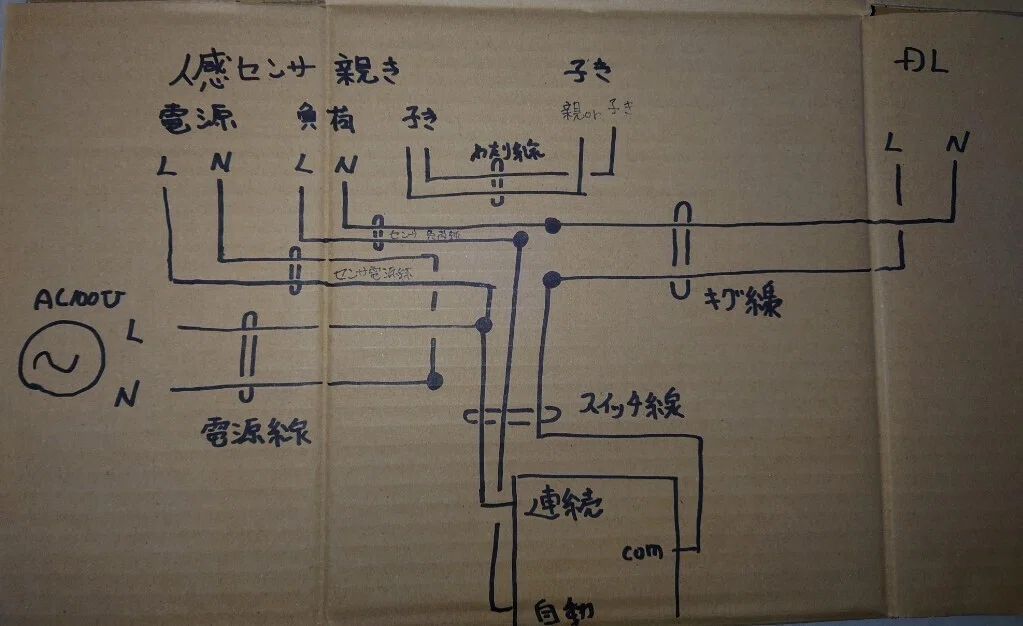 人感センサ 親き
子き
DL
電源
負荷
子き
親or子き
L
N
L
N
わたり線
L
N
センサ負荷線
センサ電源線
AC100V
L
キグ線
N
電源線
スイッチ線
連続
com
自動